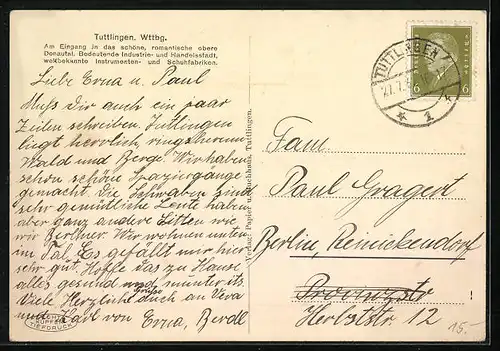 Tuttlingen, Wttbg.
Am Eingang in das schöne, romantische obere
Donautal. Bedeutende Industrie- und Handelsstadt,
weltbekannte Instrumenten- und Schuhfabriken.
Liebe Erna u. Paul
Muss Dir auch ein paar
Zeilen schreiben. Tuttlingen
liegt herrlich, ringsherum
Wald und Berge. Wir haben
schon schöne Spaziergänge
gemacht. Die Schwaben sind
sehr gemütliche Leute haben
aber ganz andere Sitten wie
wir Berliner. Wir wohnen unten
im Tal. Es gefällt mir hier
sehr gut. Hoffe das zu Hause
alles gesund und munter ist.
Viele Herzliche Grüße auch an
und Karl von Erna,
KUPFER
TIEFDRUCK
Verlag: Papier u. Buchhaus, Tuttlingen.
TUTTLINGEN
6 6
Fam.
Paul Gragert
Berlin, Reinickendorf
Herbststr 12
15.-